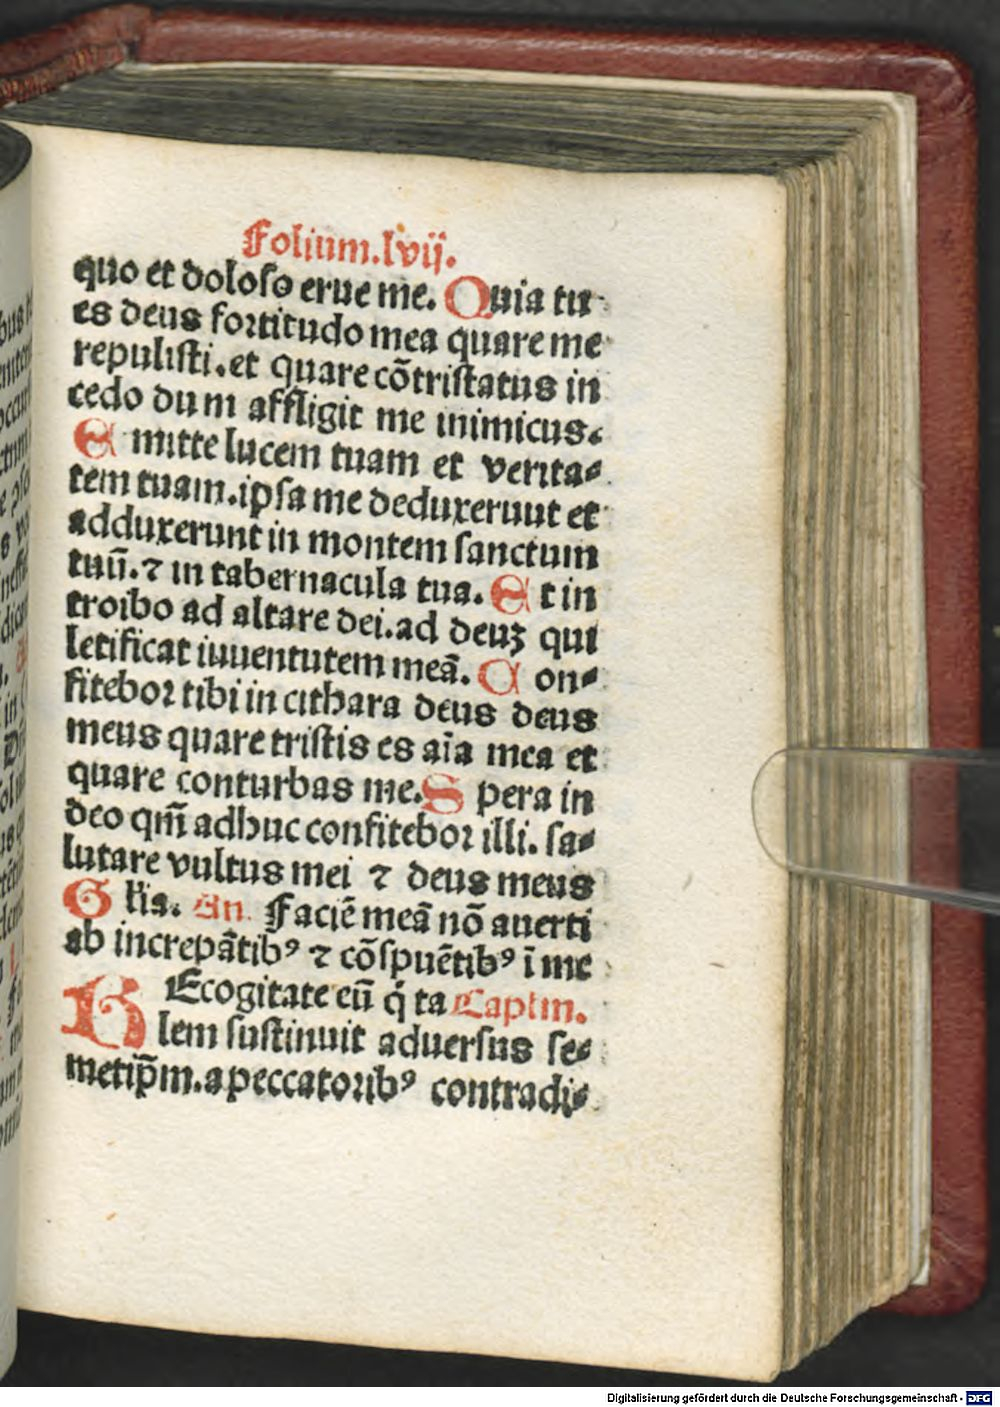 Folium.lvij.
quo et doloso erue me. Quia tu
es deus fortitudo mea quare me
repulisti.et quare cõtristatus in
cedo dum affligit me inimicus.
Emitte lucem tuam et verita-
tem tuam.ipsa me deduxeruut et
adduxerunt in montem sanctum
tuũ.⁊ in tabernacula tua. Et in
troibo ad altare dei.ad deuʒ qui
letificat iuuentutem meã. Con-
fitebor tibi in cithara deus deus
meus quare tristis es aĩa mea et
quare conturbas me. Spera in
deo qm̃ adhuc confitebor illi. sa-
lutare vultus mei ⁊ deus meus
Glia. An. Faciẽ meã nõ auerti
ab increpãtibꝰ ⁊ cõspuẽtibꝰ ĩ me
REcogitate eũ q̇ ta Captm.
lem sustinuit aduersus se-
metip̃m.a peccatoribꝰ contradi-
Digitalisierung gefördert durch die Deutsche Forschungsgemeinschaft - DFG